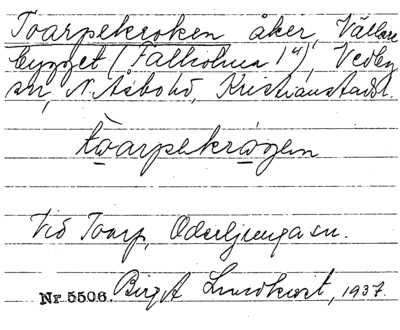 Toarpekroken åker, Vällare
bygget (Falholma 1⁴), Vedby
sn, N. Åsbo hd, Kristianstads l.
tωarpekrωgen
Vid Toarp, Oderljunga sn.
Nr 5506. Birgit Lundkvist, 1937.